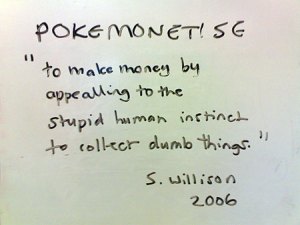 POKEMONETISE
"to make money by
appealling to the
stupid human instinct
to collect dumb things."
S. Willison
2006